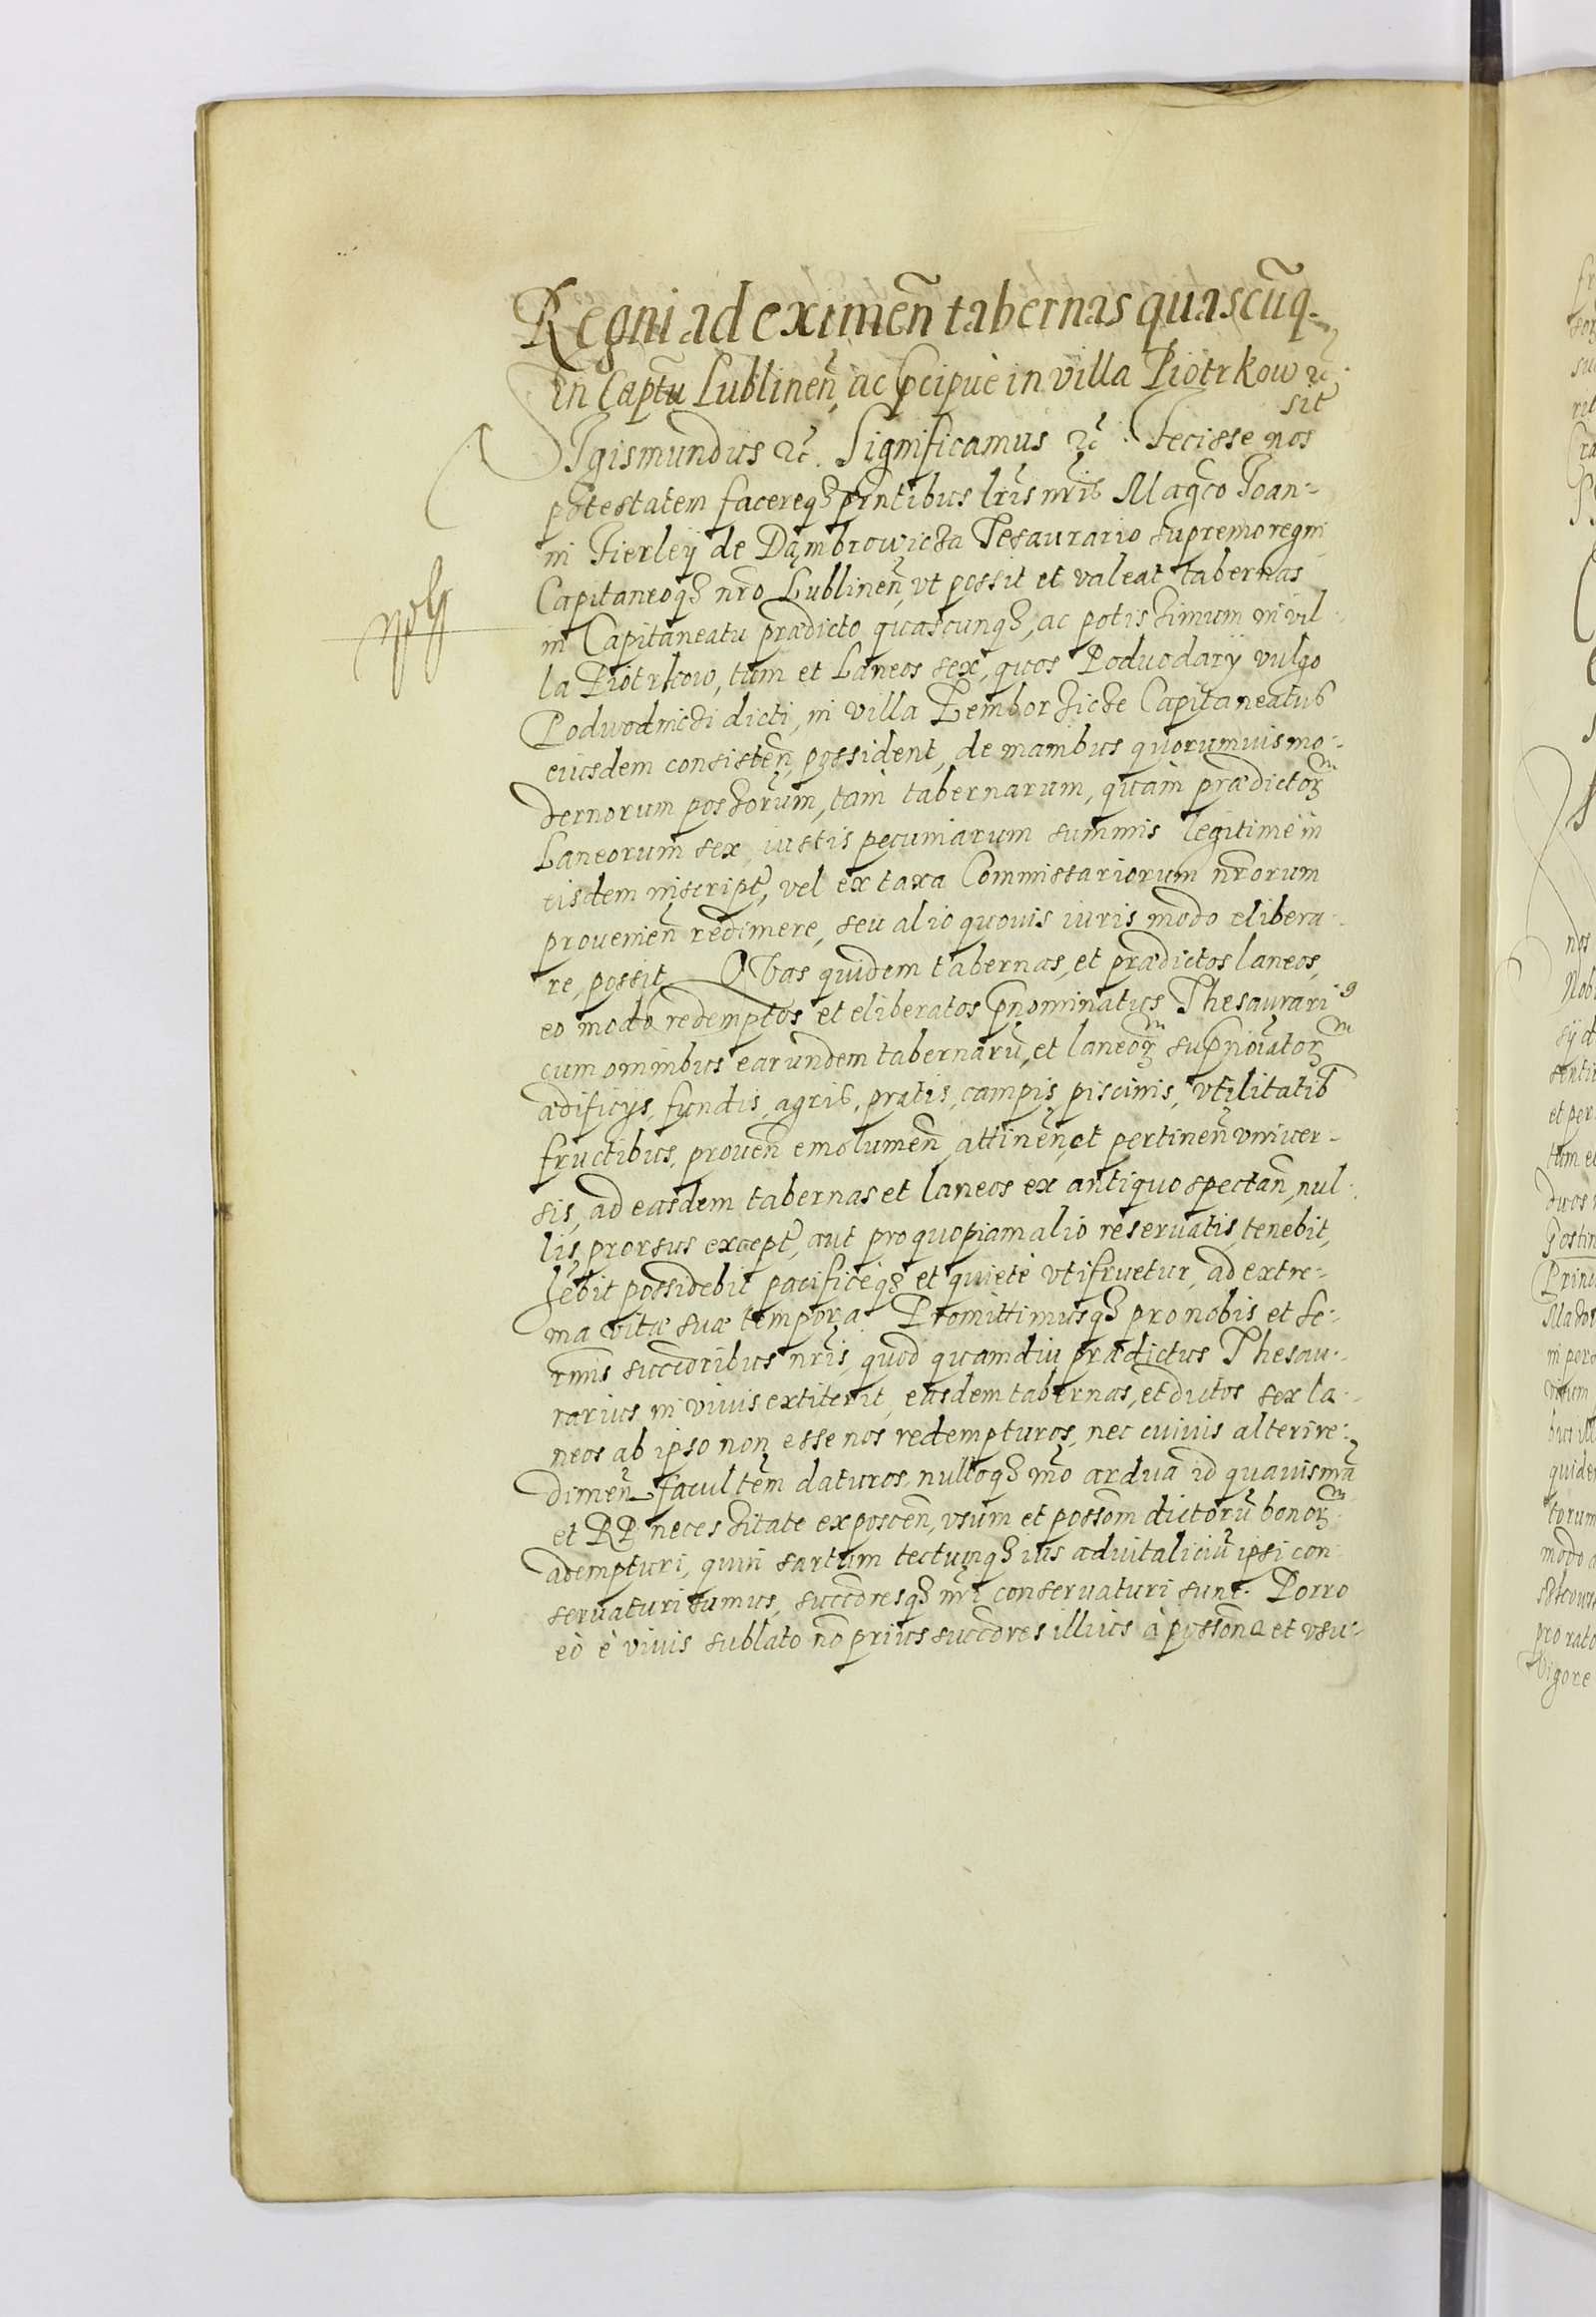 Regni ad eximen̄ tabernas quascūq.
in Captū Lublinen̄, ac p̄cipuè in villa Piotrkow ꝛc̃.
Sigismundus ꝛc̃. Significamus ꝛc̃. Fecisse nos
potestatem facereqȝ pr̄ntibus lr̄is nr̄is Magco Joan-
ni Firleij de Dąmbrowicza Tesaurario supremo regni
Capitaneoqȝ nr̄o Lublinen̄, vt possit et valeat tabernas
in Capitaneatu prædicto quascunqȝ, ac potissimum in vil-
la Piotrkow, tum et Laneos sex, quos Podvodarij vulgo
Podwodniczi dicti, in villa Zemborzicze Capitaneatus
eiusdem consisten̄ possident, de manibus quorumuis mo-
dernorum poss̄orum, tam tabernarum, quàm prædictoꝝ
Laneorum sex, iustis pecuniarum summis legitimè in
eisdem inscript, vel ex taxa Commissariorum nr̄orum
prouenien̄ redimere, seu alio quouis iuris modo elibera-
re, possit. Quas quidem tabernas, et prædictos laneos,
eo modo redemptos et eliberatos p̄nominatus Thesaurari9
cum omnibus earundem tabernarū, et laneoꝝ sup̄noīatoꝝ
ædificijs, fundis, agris, pratis, campis, piscinis, vtilitatib
fructibus, prouen̄ emolumen̄ attinen̄, et pertinen̄ vniuer-
sis, ad easdem tabernas et laneos ex antiquo spectan̄, nul-
lis, prorsus except, aut pro quopiam alio reseruatis, tenebit,
hēbit possidebit pacificeqȝ et quietè vtifruetur, ad extre-
ma vitæ suæ tempora Promittimusqȝ pro nobis et se-
rmis succ̄oribus nr̄is, quod quamdiu prædictus Thesau-
rarius in viuis extiterit, easdem tabernas, et dictos sex la-
neos ab ipso non esse nos redempturos, nec cuiuis alteri re-
dimen̄ facultem daturos, nulloqȝ mō ardua id quauis mā
et RP necessitate exposcen̄, vsum et possōm dictorū bonoꝝ
adempturi, quin sartum tectumqȝ ius aduitaliciū ipsi con-
seruaturi sumus, succ̄oresqȝ nr̄i conseruaturi sunt. Porro
eò è viuis sublato nō prius succ̄ores illius à possōne et vsu-